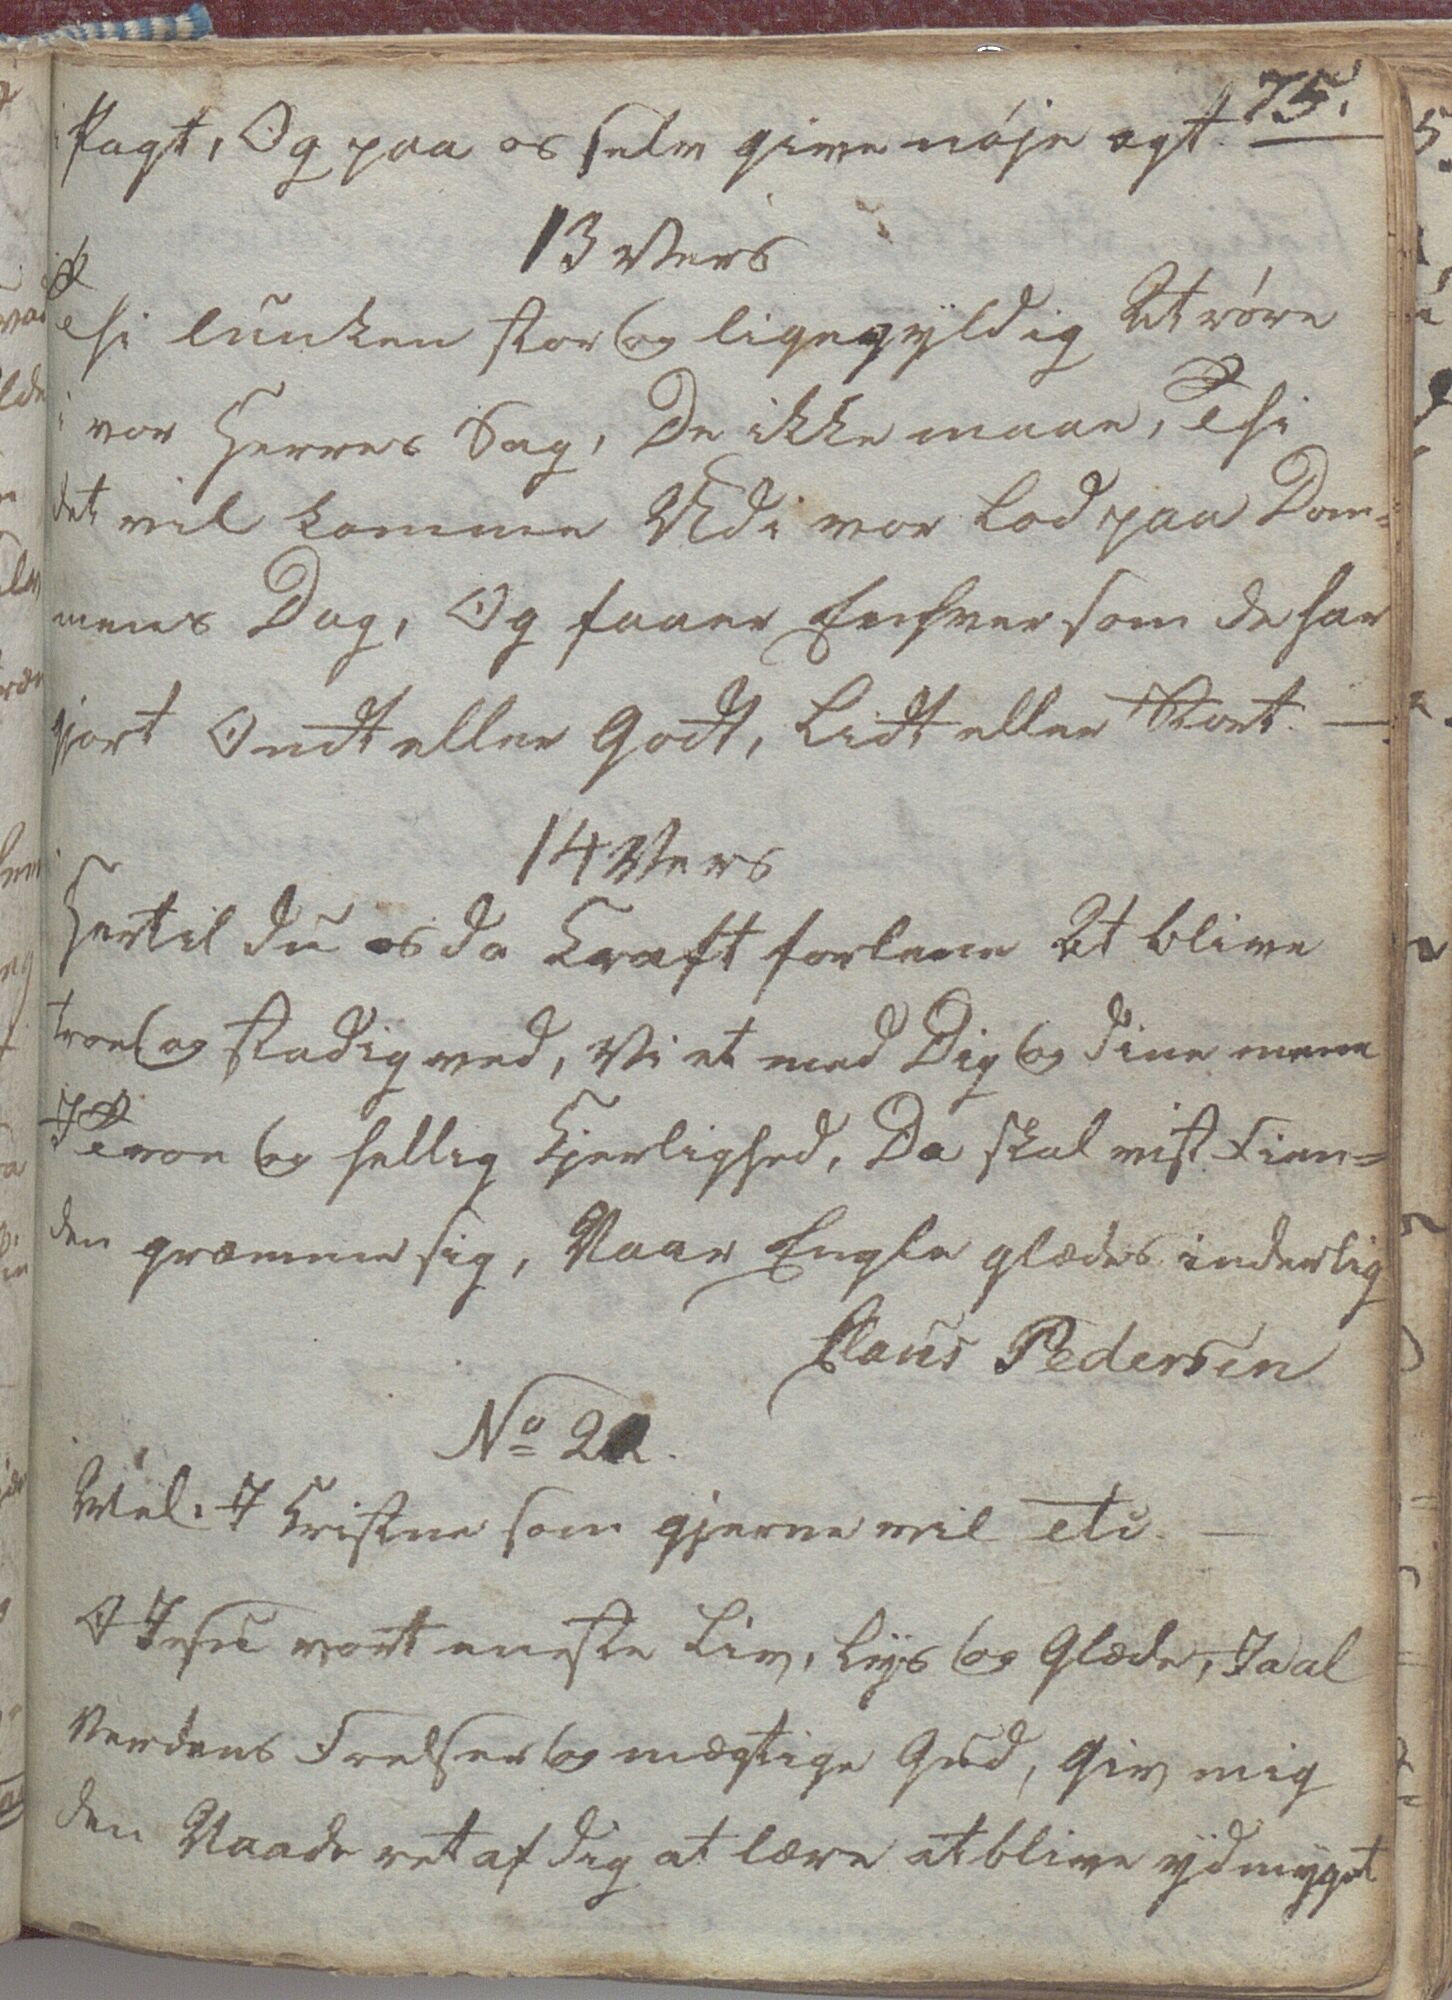 75.
Pagt, Og paa os selv give nøje agt.
13 Vers
Thi lunken stor og ligegyldig At være
i vor Herres Sag, De ikke maae, Thi
det vil komme Udi vor Lod paa Dom=
mens Dag, Og faaer Enhver som de har
gjort Ondt eller Godt, Lidt eller Stort. —
14 Vers
Hertil du os da Kraft forlene At blive
troe og stadig ved, Vi et med Dig og dine mene
I Troe og hellig Kjerlighed, Da skal vist Fien=
den græmme sig, Naar Engle glædes inderlig
Claus Pedersen
No 22.
Mel. I Kristne som gjerne vil etc. —
O Jesu vort eneste Liv, Lys og Glæde, Ja al
Verdens Frelser og mægtige Gud, Giv mig
den Naade ret af dig at lære at blive ydmyget